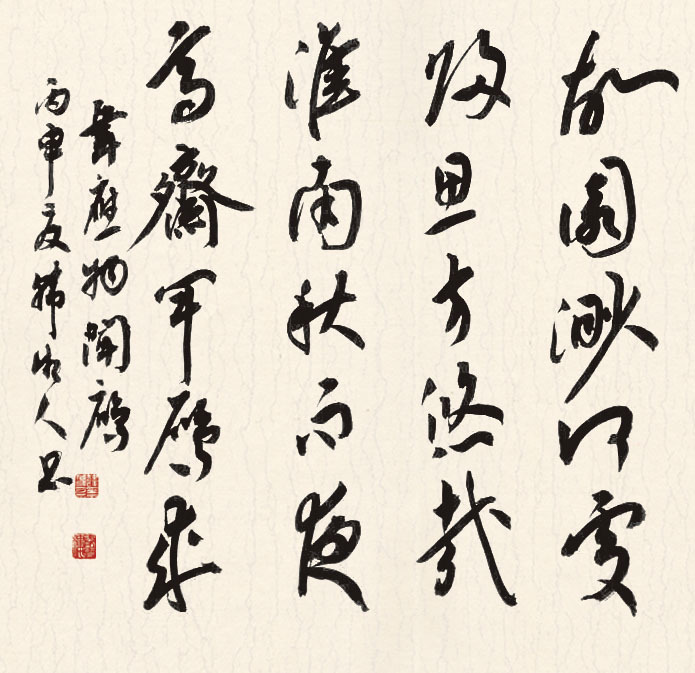 故園渺何處
歸思方悠哉
淮南秋雨夜
高齋聞鴈來
韋應物聞鴈
丙申夏 人書